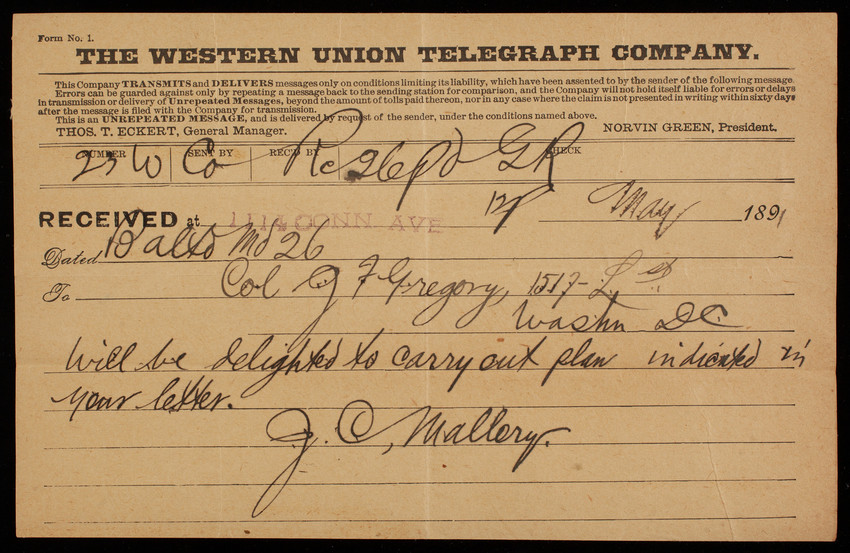 Form No. 1.
THE WESTERN UNION TELEGRAPH COMPANY.
This Company TRANSMITS and DELIVERS messages only on conditions limiting its liability, which have been assented to by the sender of the following message.
Errors can be guarded against only by repeating a message back to the sending station for comparison, and the Company will not hold itself liable for errors or delays
in transmission or delivery of Unrepeated Messages, beyond the amount of tolls paid thereon, nor in any case where the claim is not presented in writing within sixty days
after the message is filed with the Company for transmission.
This is an UNREPEATED MESSAGE, and is delivered by request of the sender, under the conditions named above.
THOS. T. ECKERT, General Manager. NORVIN GREEN, President.
NUMBER SENT BY REC'D BY CHECK
23 W Co Rc 26 pd GR
RECEIVED at 1114 CONN. AVE May 1891
Dated Balto Md 26
To Col J F Gregory, 1517- L St
Washn DC
Will be delighted to carry out plan indicated in
your letter.
J. C, Mallery.